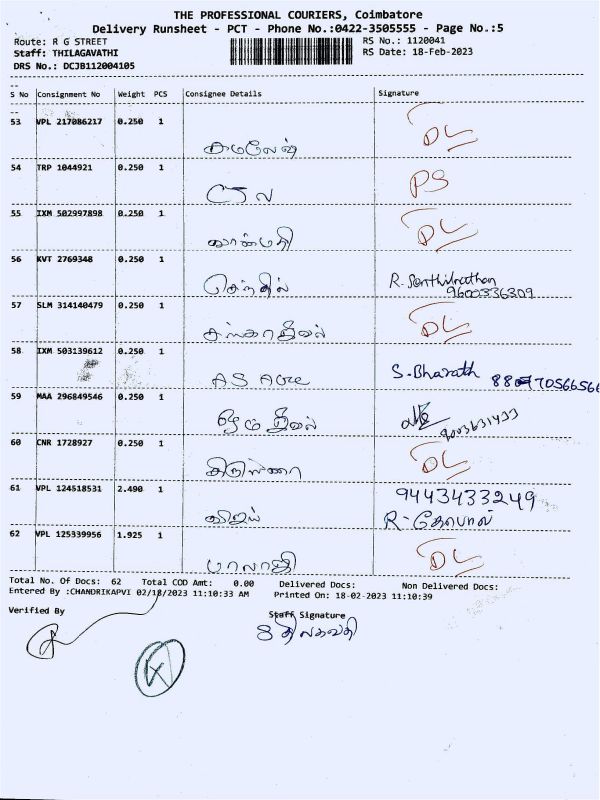 THE PROFESSIONAL COURIERS, Coimbatore
Delivery Runsheet - PCT - Phone No.:0422-3505555 - Page No.:5
Route: R G STREET RS No.: 1120041
Staff: THILAGAVATHI RS Date: 18-Feb-2023
DRS No.: DCJB112004105
S No Consignment No Weight PCS Consignee Details Signature
53 VPL 217086217 0.250 1 DL
கமலேஷ்
54 TRP 1044921 0.250 1 PS
55 IXM 502997898 0.250 1 DL
56 KVT 2769348 0.250 1
செந்தில் R. Senthilnathan
9600336309
57 SLM 314140479 0.250 1 DL
58 IXM 503139612 0.250 1 S. Bharath
AS
59 MAA 296849546 0.250 1
ஓம் 9003631433
60 CNR 1728927 0.250 1 DL
61 VPL 124518531 2.490 1 9443433249
R- கோபால்
62 VPL 125339956 1.925 1 DL
பாலாஜி
Total No. Of Docs: 62 Total COD Amt: 0.00 Delivered Docs: Non Delivered Docs:
Entered By :CHANDRIKAPVI 02/18/2023 11:10:33 AM Printed On: 18-02-2023 11:10:39
Verified By Staff Signature
திலகவதி